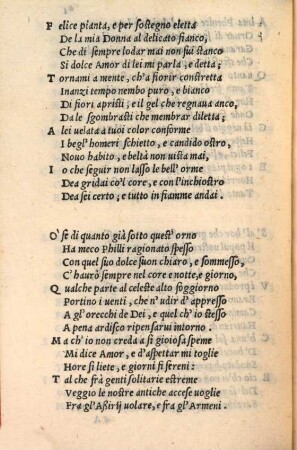 Felice pianta, e per sostegno eletta
De la mia Donna al delicato fianco,
Che di sempre lodar mai non sui stanco
Si dolce Amor di lei mi parla, e detta;
Tornami a mente, ch'a fiorir constretta
Inanzi tempo nembo puro, e bianco
Di fiori apristi, e il gel che regnaua anco,
Da le sgombrasti che membrar diletta;
A lei uelata a tuoi color conforme
I begl' homeri schietto, e candido ostro,
Nouo habito, e beltà non uista mai,
Io che seguir non lasso le bell' orme
Dea gridai co'l core, e con l'inchiostro
Dea sei certo, e tutto in fiamme andai.
O' se di quanto già sotto quest' orno
Ha meco Philli ragionato spesso
Con quel suo dolce suon chiaro, e sommesso,
C'haurò sempre nel core e notte, e giorno,
Qualche parte al celeste alto soggiorno
Portino i uenti, che n'udir d'appresso
A gl' orecchi de Dei, e quel ch'io stesso
A pena ardisco ripensarui intorno.
Ma ch'io non creda a sì gioiosa speme
Mi dice Amor, e d'aspettar mi toglie
Hore sì liete, e giorni sì sereni:
Tal che frà genti solitarie estreme
Veggio le nostre antiche accese uoglie
Fra gl' Aßirij uolare, e fra gl' Armeni.